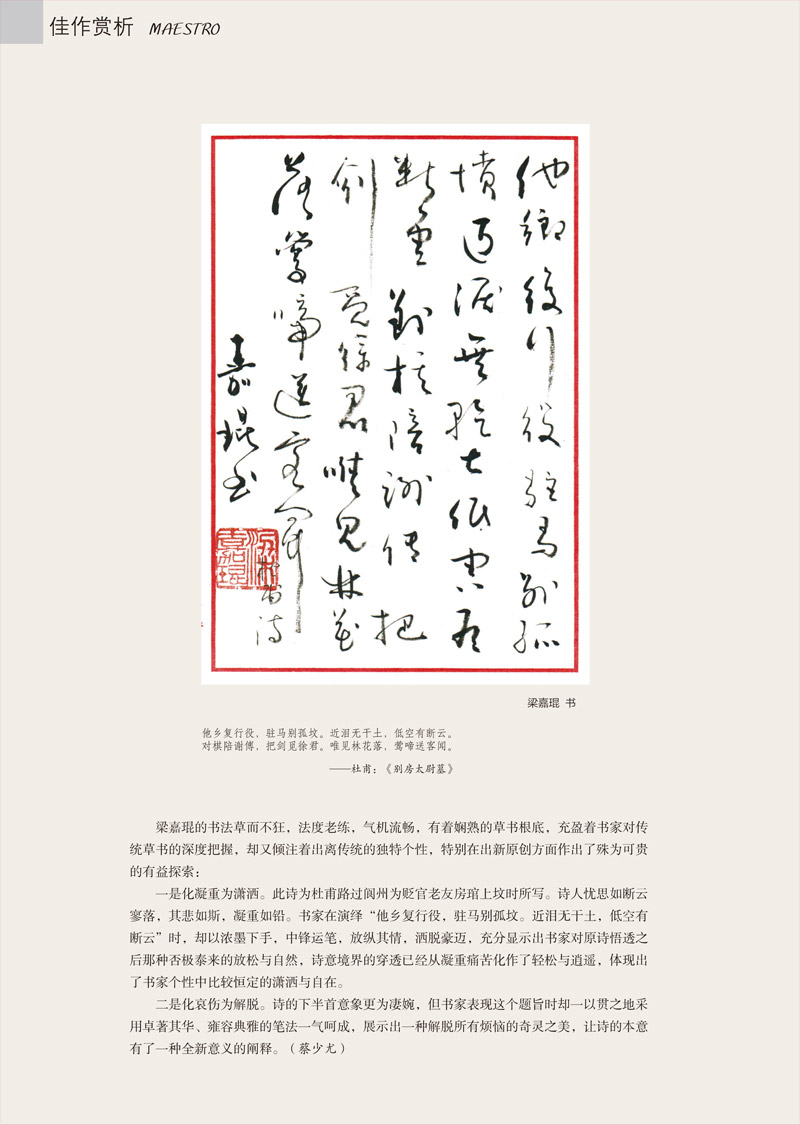 佳作赏析 MAESTRO
他鄉復行役駐馬別孤
墳近淚無乾土低空有
斷雲對棋陪謝傅把
劍覓徐君唯見林花
落鶯啼送客聞
杜甫诗
嘉琨书
梁嘉琨
梁嘉琨 书
他乡复行役，驻马别孤坟。近泪无干土，低空有断云。
对棋陪谢傅，把剑觅徐君。唯见林花落，莺啼送客闻。
——杜甫：《别房太尉墓》
梁嘉琨的书法草而不狂，法度老练，气机流畅，有着娴熟的草书根底，充盈着书家对传
统草书的深度把握，却又倾注着出离传统的独特个性，特别在出新原创方面作出了殊为可贵
的有益探索：
一是化凝重为潇洒。此诗为杜甫路过阆州为贬官老友房琯上坟时所写。诗人忧思如断云
寥落，其悲如斯，凝重如铅。书家在演绎“他乡复行役，驻马别孤坟。近泪无干土，低空有
断云”时，却以浓墨下手，中锋运笔，放纵其情，洒脱豪迈，充分显示出书家对原诗悟透之
后那种否极泰来的放松与自然，诗意境界的穿透已经从凝重痛苦化作了轻松与逍遥，体现出
了书家个性中比较恒定的潇洒与自在。
二是化哀伤为解脱。诗的下半首意象更为凄婉，但书家表现这个题旨时却一以贯之地采
用卓著其华、雍容典雅的笔法一气呵成，展示出一种解脱所有烦恼的奇灵之美，让诗的本意
有了一种全新意义的阐释。（蔡少尤）